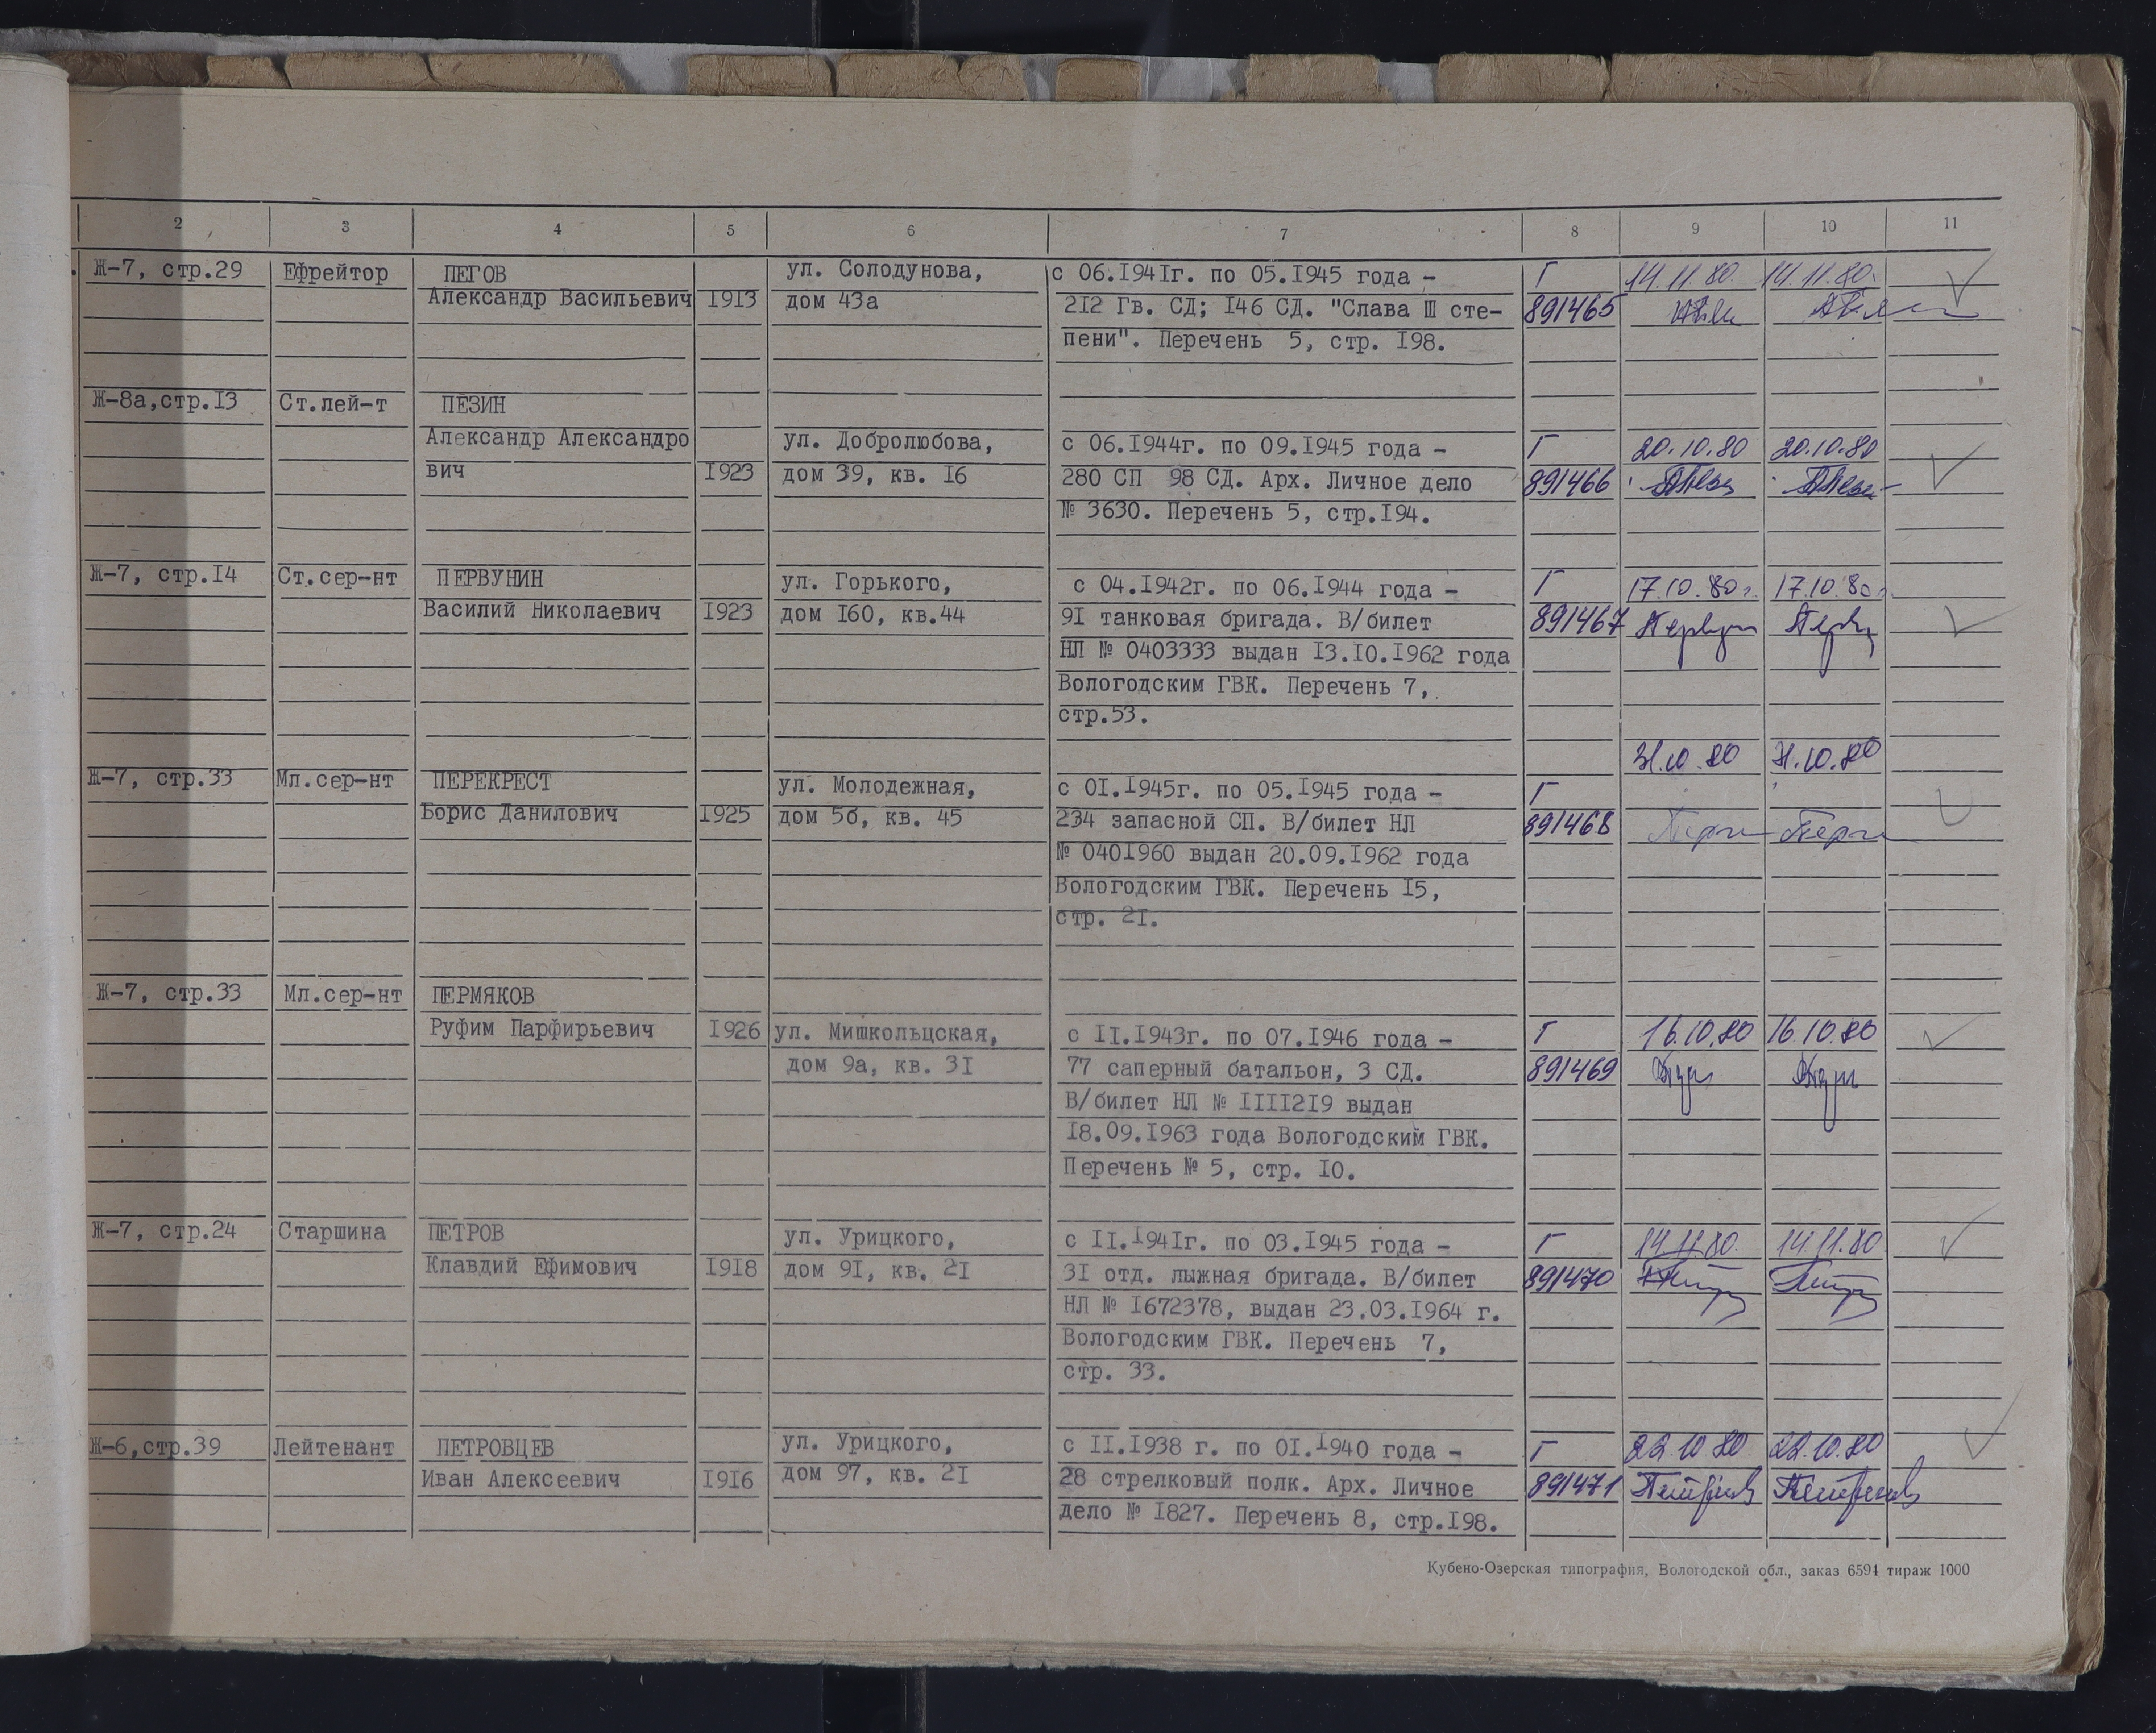 2 3 4 5 6 7 8 9 10 11
Ж-7, стр.29 Ефрейтор ПЕГОВ ул. Солодунова, с 06.1941г. по 05.1945 года - Г 14.11.80. 14.11.80.
Александр Васильевич 1913 дом 43а 212 Гв. СД; 146 СД. "Слава Ш сте- 891465
пени". Перечень 5, стр. 198.
Ж-8а,стр.13 Ст.лей-т ПЕЗИН
Александр Александро ул. Добролюбова, с 06.1944г. по 09.1945 года - Г 20.10.80 20.10.80
вич 1923 дом 39, кв. 16 280 СП 98 СД. Арх. Личное дело 891466
№ 3630. Перечень 5, стр.194.
Ж-7, стр.14 Ст.сер-нт ПЕРВУНИН ул. Горького, с 04.1942г. по 06.1944 года - Г 17.10.80г. 17.10.80г.
Василий Николаевич 1923 дом 160, кв.44 91 танковая бригада. В/билет 891467
НЛ № 0403333 выдан 13.10.1962 года
Вологодским ГВК. Перечень 7,
стр.53.
31.10.80 31.10.80
Ж-7, стр.33 Мл.сер-нт ПЕРЕКРЕСТ ул. Молодежная, с 01.1945г. по 05.1945 года - Г
Борис Данилович 1925 дом 5б, кв. 45 234 запасной СП. В/билет НЛ 891468
№ 0401960 выдан 20.09.1962 года
Вологодским ГВК. Перечень 15,
стр. 21.
Ж-7, стр.33 Мл.сер-нт ПЕРМЯКОВ
Руфим Парфирьевич 1926 ул. Мишкольцская, с 11.1943г. по 07.1946 года - Г 16.10.80 16.10.80
дом 9а, кв. 31 77 саперный батальон, 3 СД. 891469
В/билет НЛ № 1111219 выдан
18.09.1963 года Вологодским ГВК.
Перечень № 5, стр. 10.
Ж-7, стр.24 Старшина ПЕТРОВ ул. Урицкого, с 11.1941г. по 03.1945 года - Г 14.11.80. 14.11.80
Клавдий Ефимович 1918 дом 91, кв. 21 31 отд. лыжная бригада. В/билет 891470
НЛ № 1672378, выдан 23.03.1964 г.
Вологодским ГВК. Перечень 7,
стр. 33.
Ж-6,стр.39 Лейтенант ПЕТРОВЦЕВ ул. Урицкого, с 11.1938 г. по 01.1940 года - Г 22.10.80 22.10.80
Иван Алексеевич 1916 дом 97, кв. 21 28 стрелковый полк. Арх. Личное 891471
дело № 1827. Перечень 8, стр.198.
Кубено-Озерская типография, Вологодской обл., заказ 6594 тираж 1000